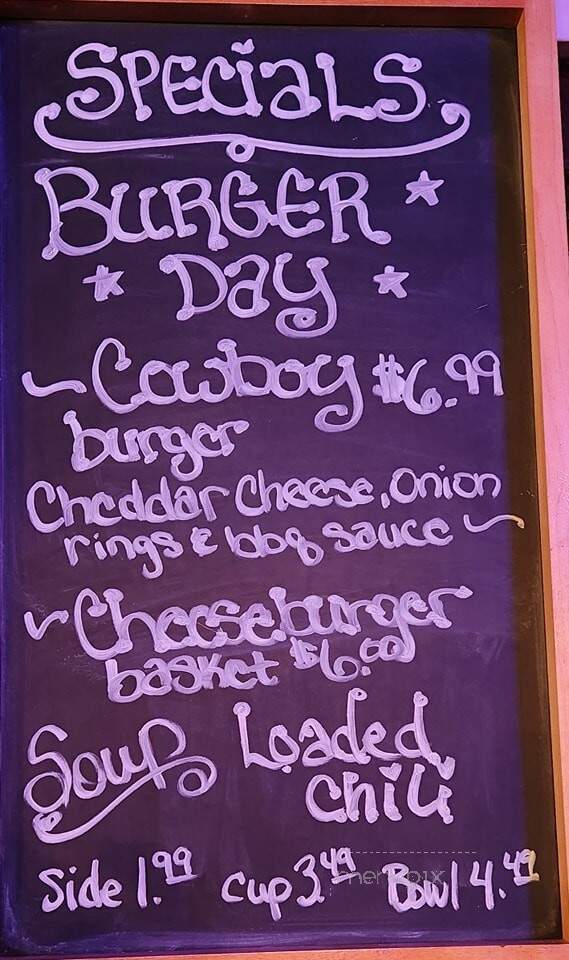 SPECiaLS
BURGER
Day
~ Cowboy $6.99
burger
Cheddar Cheese, Onion
rings & bbq sauce ~
~ Cheeseburger
basket $6.00
Soup Loaded
Chili
Side 1.99 Cup 3.49 Bowl 4.49
menupix